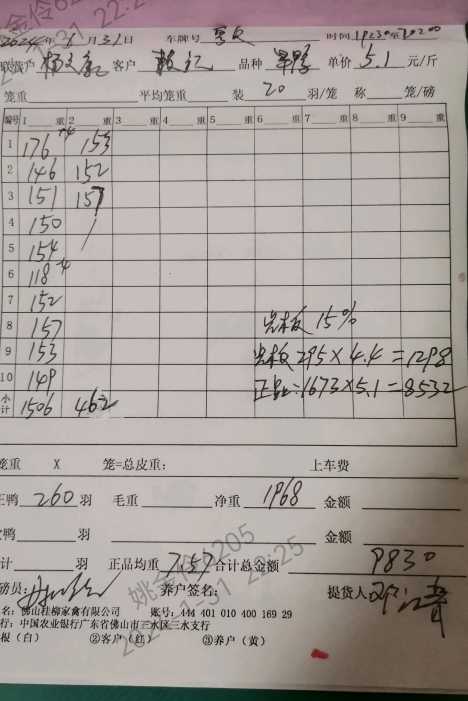 2024年1月31日 车牌号 时间 19:30至20:00
联营户 杨文 客户 品种 单价 5.1 元/斤
笼重 平均笼重 装 20 羽/笼 称 笼/磅
编号 1 重 2 重 3 重 4 重 5 重 6 重 7 重 8 重 9 重
1 176 153
2 146 152
3 151 157
4 150
5 154
6 118
7 152
8 157 光板 15%
9 153 光板 295×4.4=1298
10 149 正品:1673×5.1=8532
小计 1506 462
笼重 X 笼=总皮重: 上车费
正鸭 260 羽 毛重 净重 1968 金额
鸭 羽 金额
计 羽 正品均重 7.57 合计总金额 9830
磅员: 养户签名: 提货人
名:佛山桂柳家禽有限公司 账号:444 401 010 400 169 29
行:中国农业银行广东省佛山市三水区三水支行
根(白) ②客户(红) ③养户(黄)